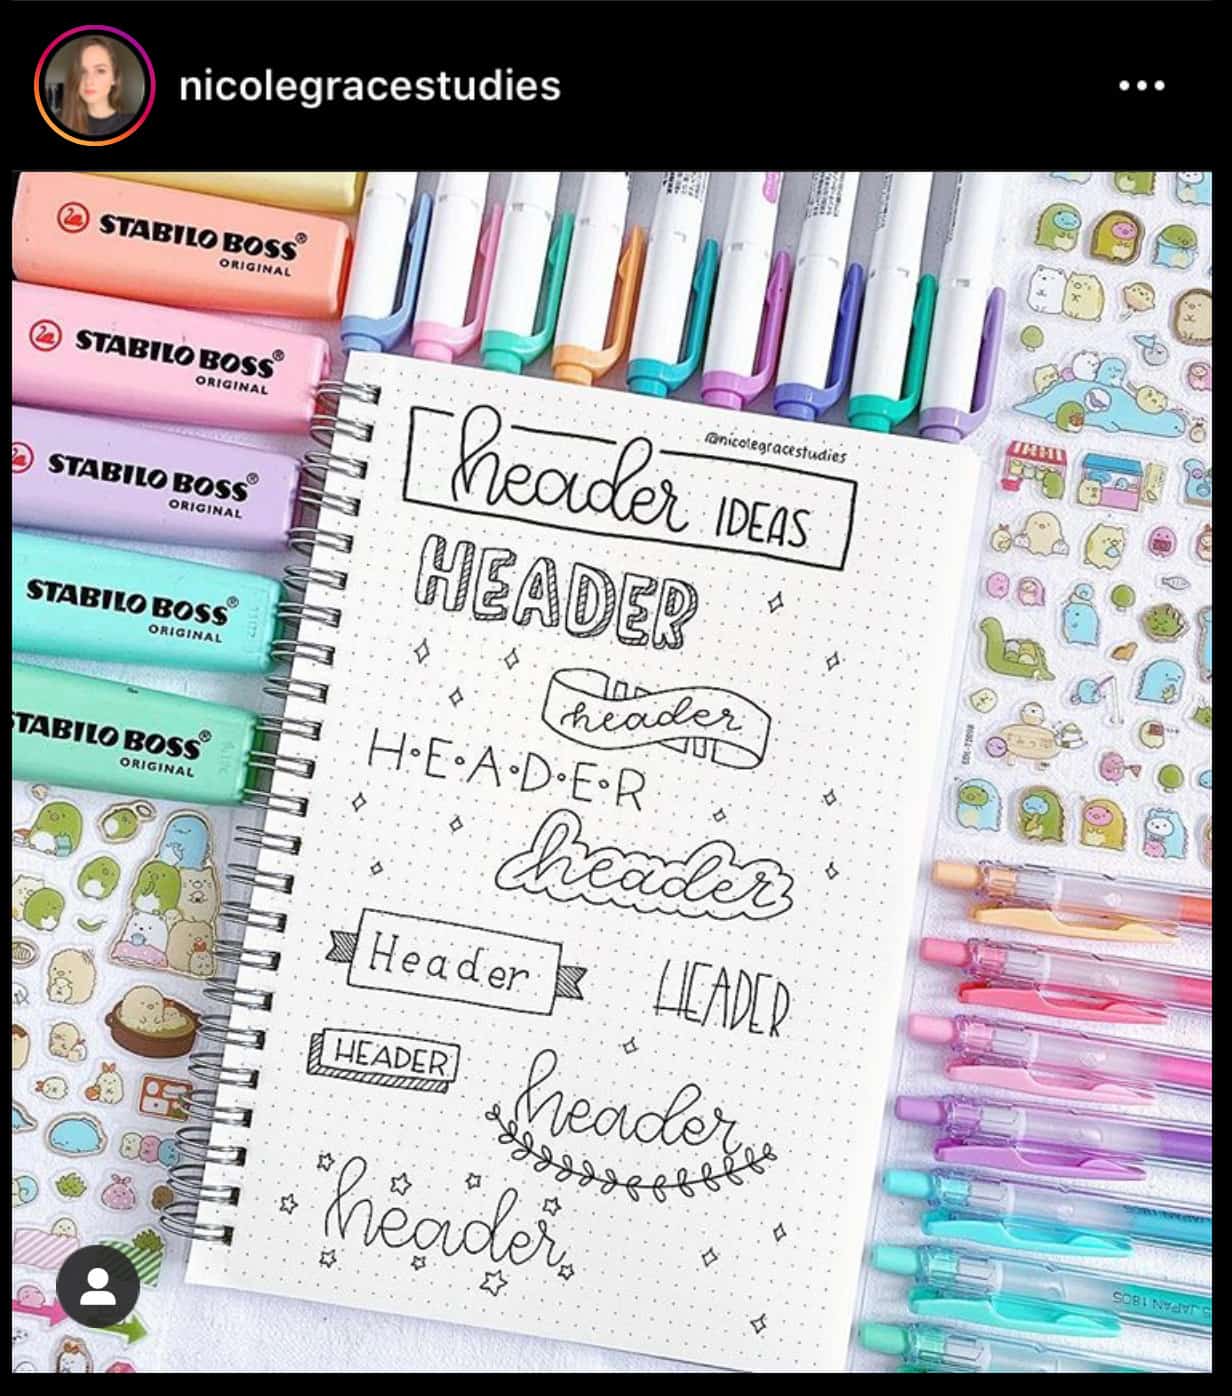 nicolegracestudies
STABILO BOSS®
ORIGINAL
STABILO BOSS®
ORIGINAL
STABILO BOSS®
ORIGINAL
STABILO BOSS®
ORIGINAL
TABILO BOSS®
ORIGINAL
@nicolegracestudies
header IDEAS
HEADER
header
H•E•A•D•E•R
header
Header
HEADER
HEADER
header
header
JAPAN 180S